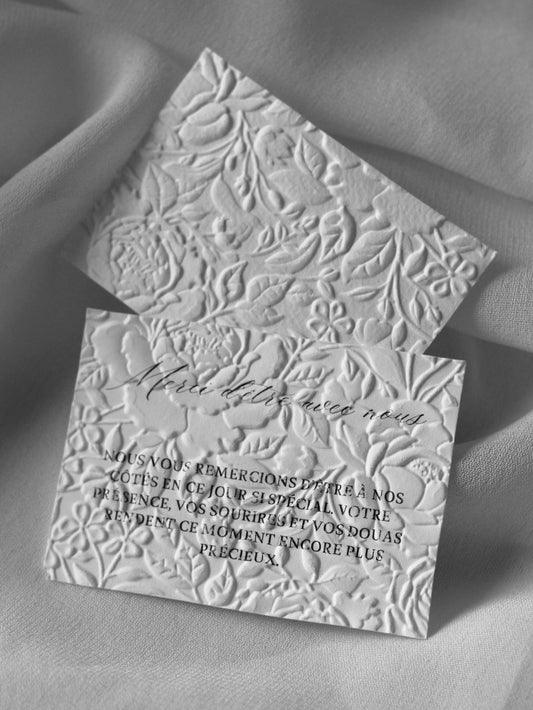 Merci d'être avec nous
NOUS VOUS REMERCIONS D'ÊTRE À NOS
CÔTÉS EN CE JOUR SI SPÉCIAL. VOTRE
PRÉSENCE, VOS SOURIRES ET VOS DOUAS
RENDENT CE MOMENT ENCORE PLUS
PRÉCIEUX.